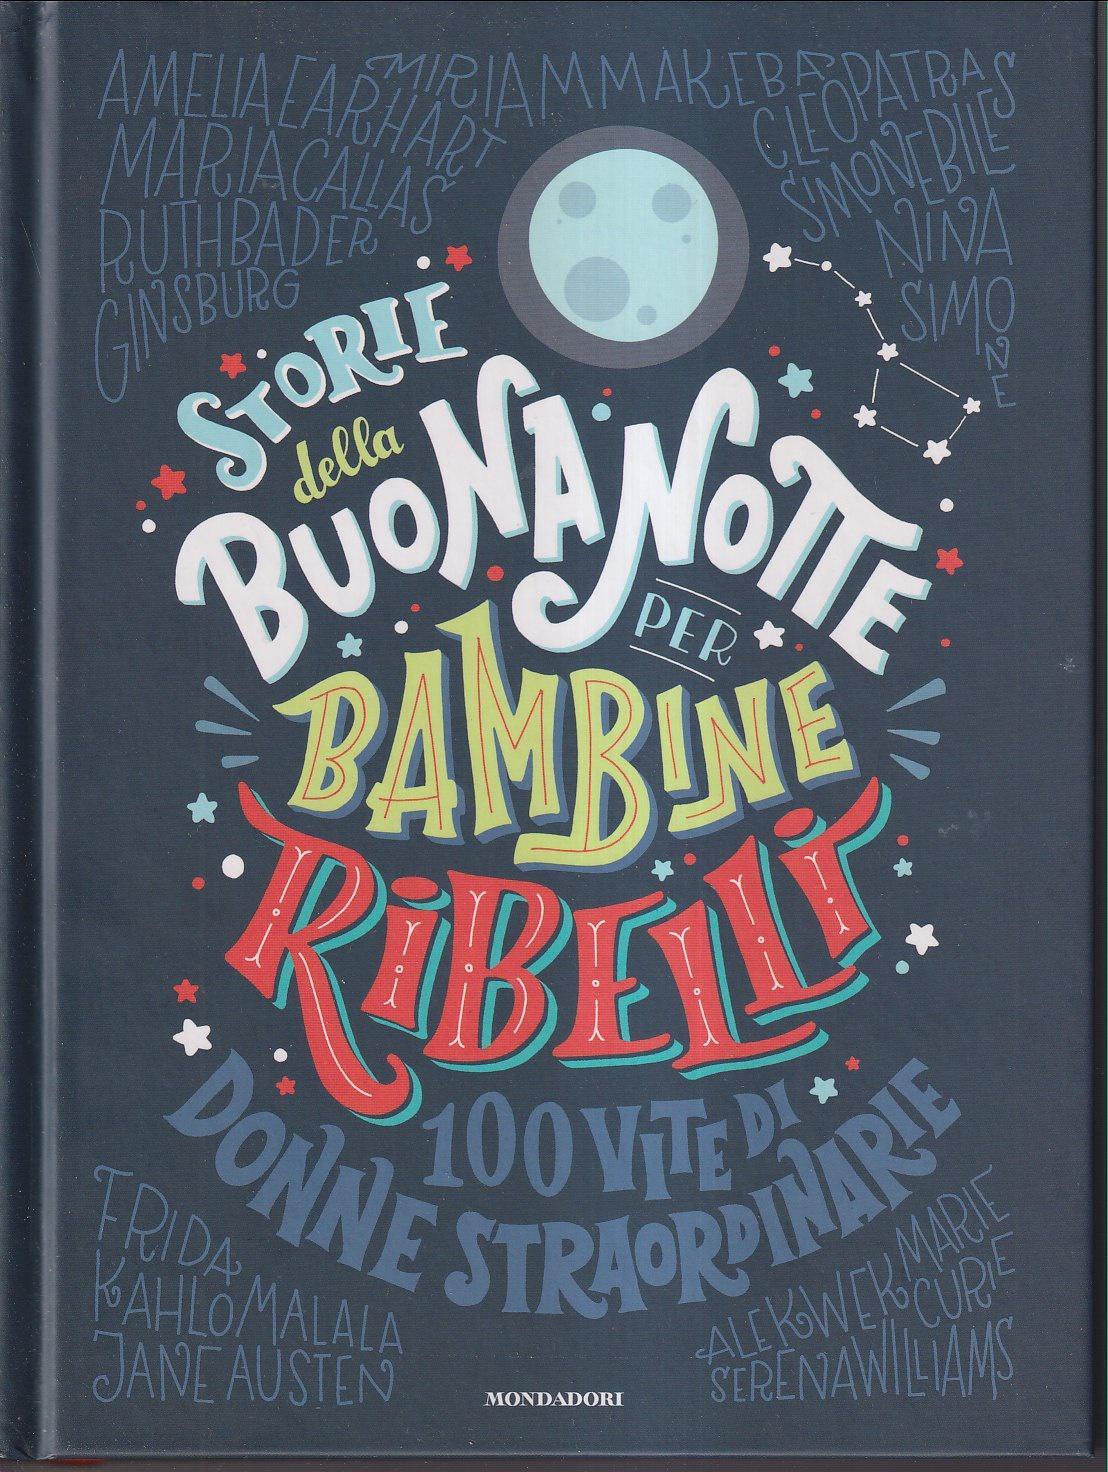 AMELIA EARHART
MIRIAM MAKEBA
CLEOPATRAS
MARIA CALLAS
SIMONE BILES
RUTH BADER
GINSBURG
NINA
SIMONE
STORIE
della
BUONANOTTE
PER
BAMBINE
RIBELLI
100 VITE DI
DONNE STRAORDINARIE
FRIDA
KAHLO MALALA
JANE AUSTEN
MARIE
CURIE
ALEK WEK
SERENA WILLIAMS
MONDADORI